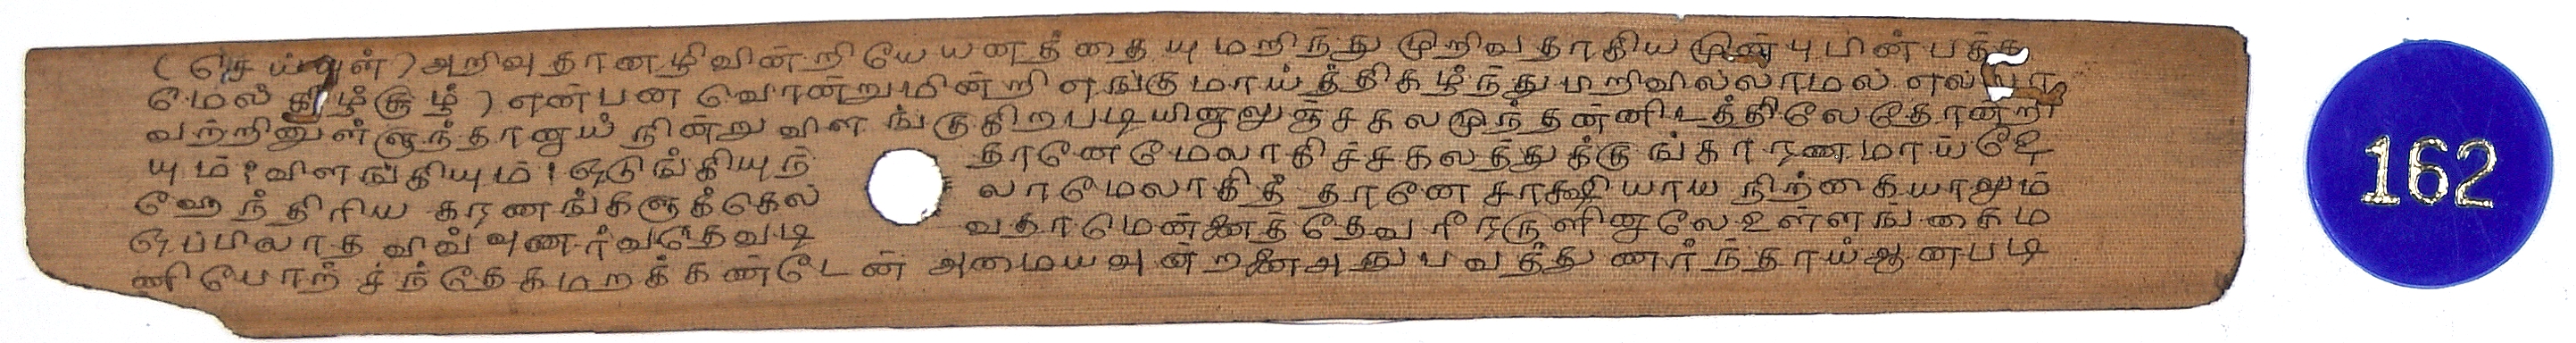 (செய்யுள்) அறிவு தானழிவின்றியேயனத்தையுமறிந்து முறிவதாகிய முன்புபின்பக்க
மேல் கீழ்சூழ்) என்பன வொன்றுமின்றி எங்குமாய்த்திகழ்ந்து மறிவில்லாமல் எல்லா
வற்றினுள்ளுந்தானாய் நின்று விளங்குகிறபடியினாலுஞ்சகலமூந்தன்னிடத்திலேதோன்றி
யும் விளங்கியும் ஒடுங்கியுந் தானேமேலாகிச்சகலத்துக்குங்காரணமாய்தே
ஹேந்திரிய கரணங்களுக்கெல் லாமேலாகித் தானே சாக்ஷியாய நிற்கையாலும்
ஒப்பிலாத விவ்வுணர்வதேவடி வதாமென்னைத்தேவரீரருளினாலே உள்ளங்கைம
ணியொற் சந்தேகமறக்கண்டேன் அமையவுன்றனை அனுபவத்துணர்ந்தாய் ஆனபடி
162